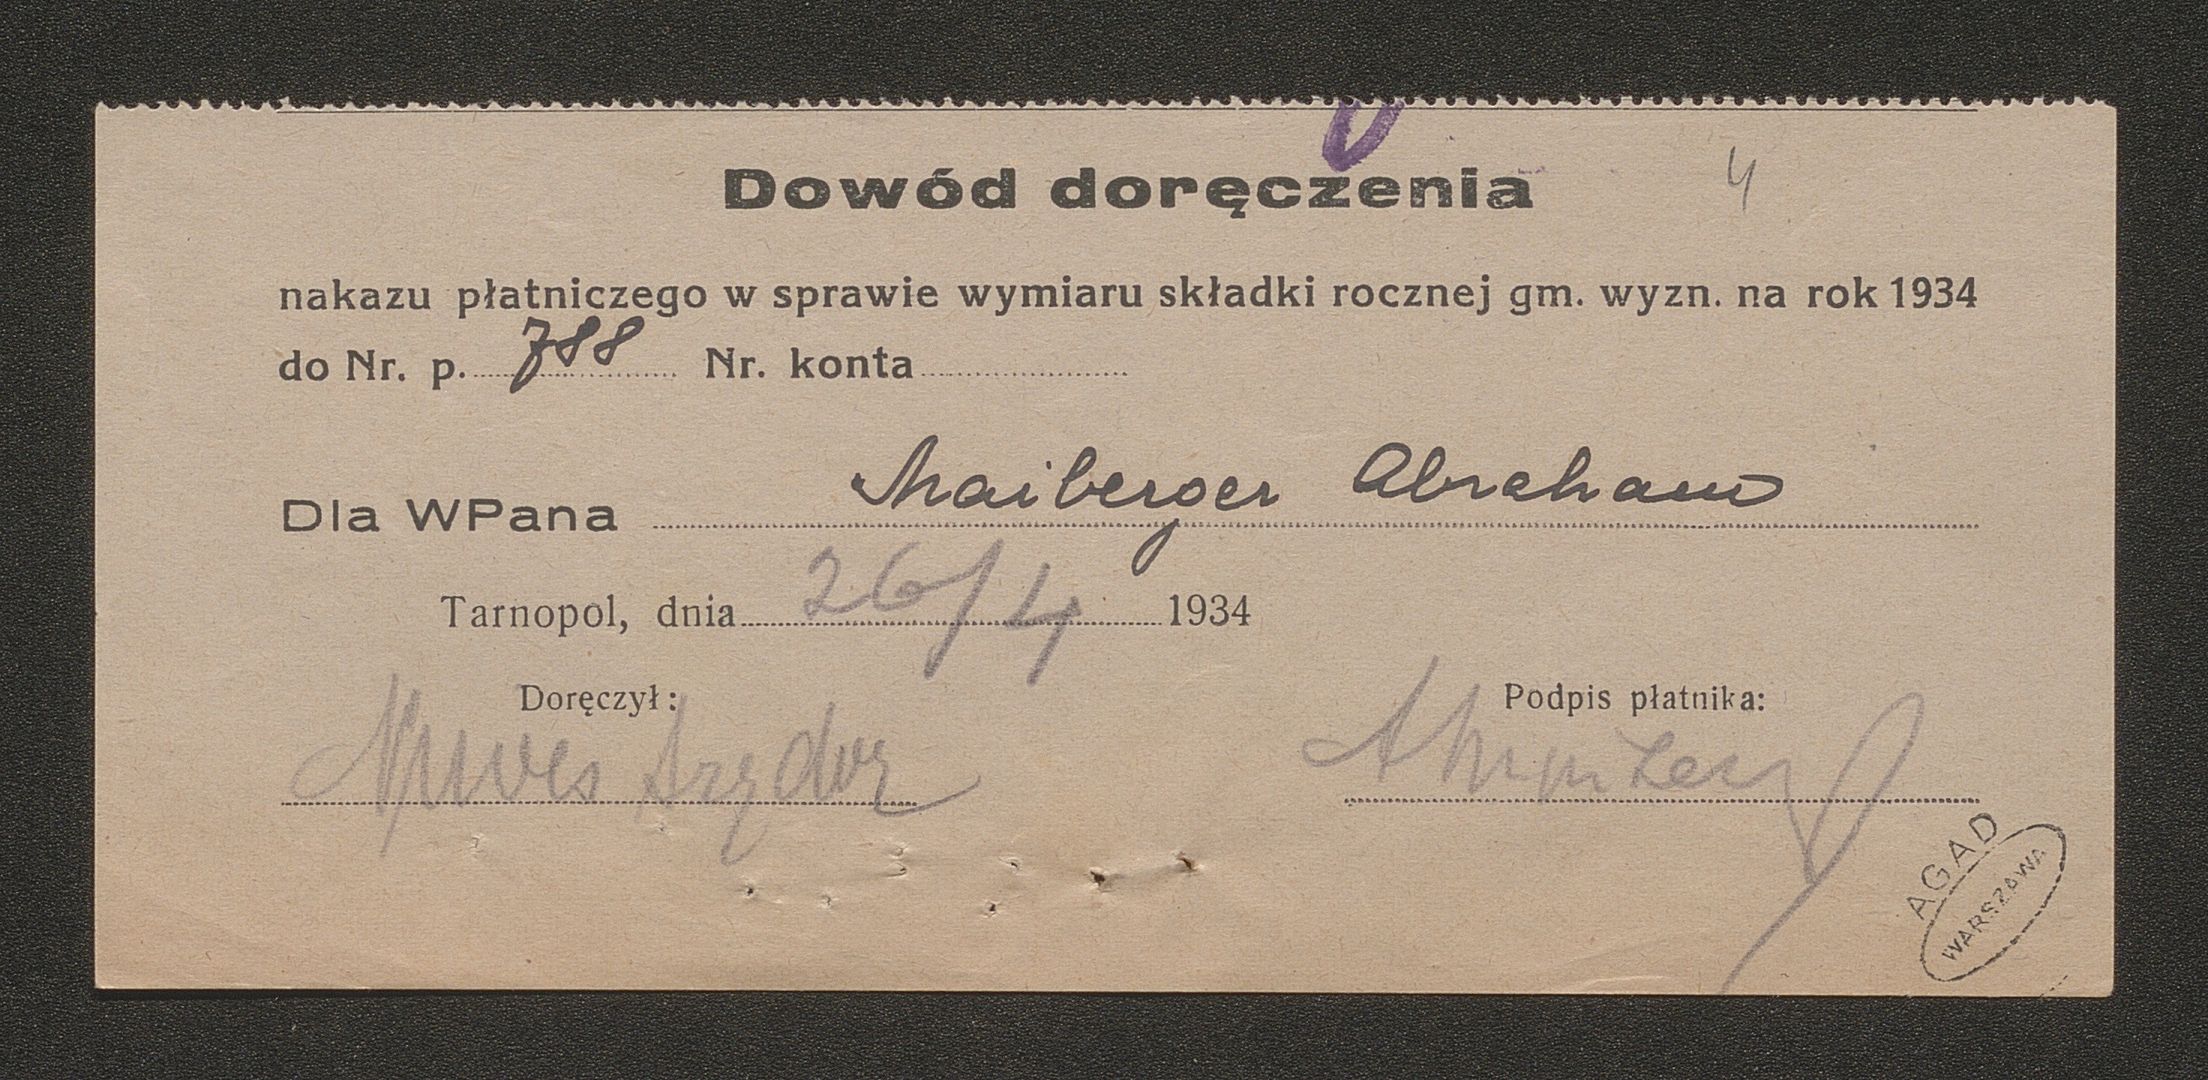 4
Dowód doręczenia
nakazu płatniczego w sprawie wymiaru składki rocznej gm. wyzn. na rok 1934
do Nr. p. 788 Nr. konta
Dla WPana Maiberger Abraham
Tarnopol, dnia 26/4 1934
Doręczył: Podpis płatnika:
AGAD
WARSZAWA